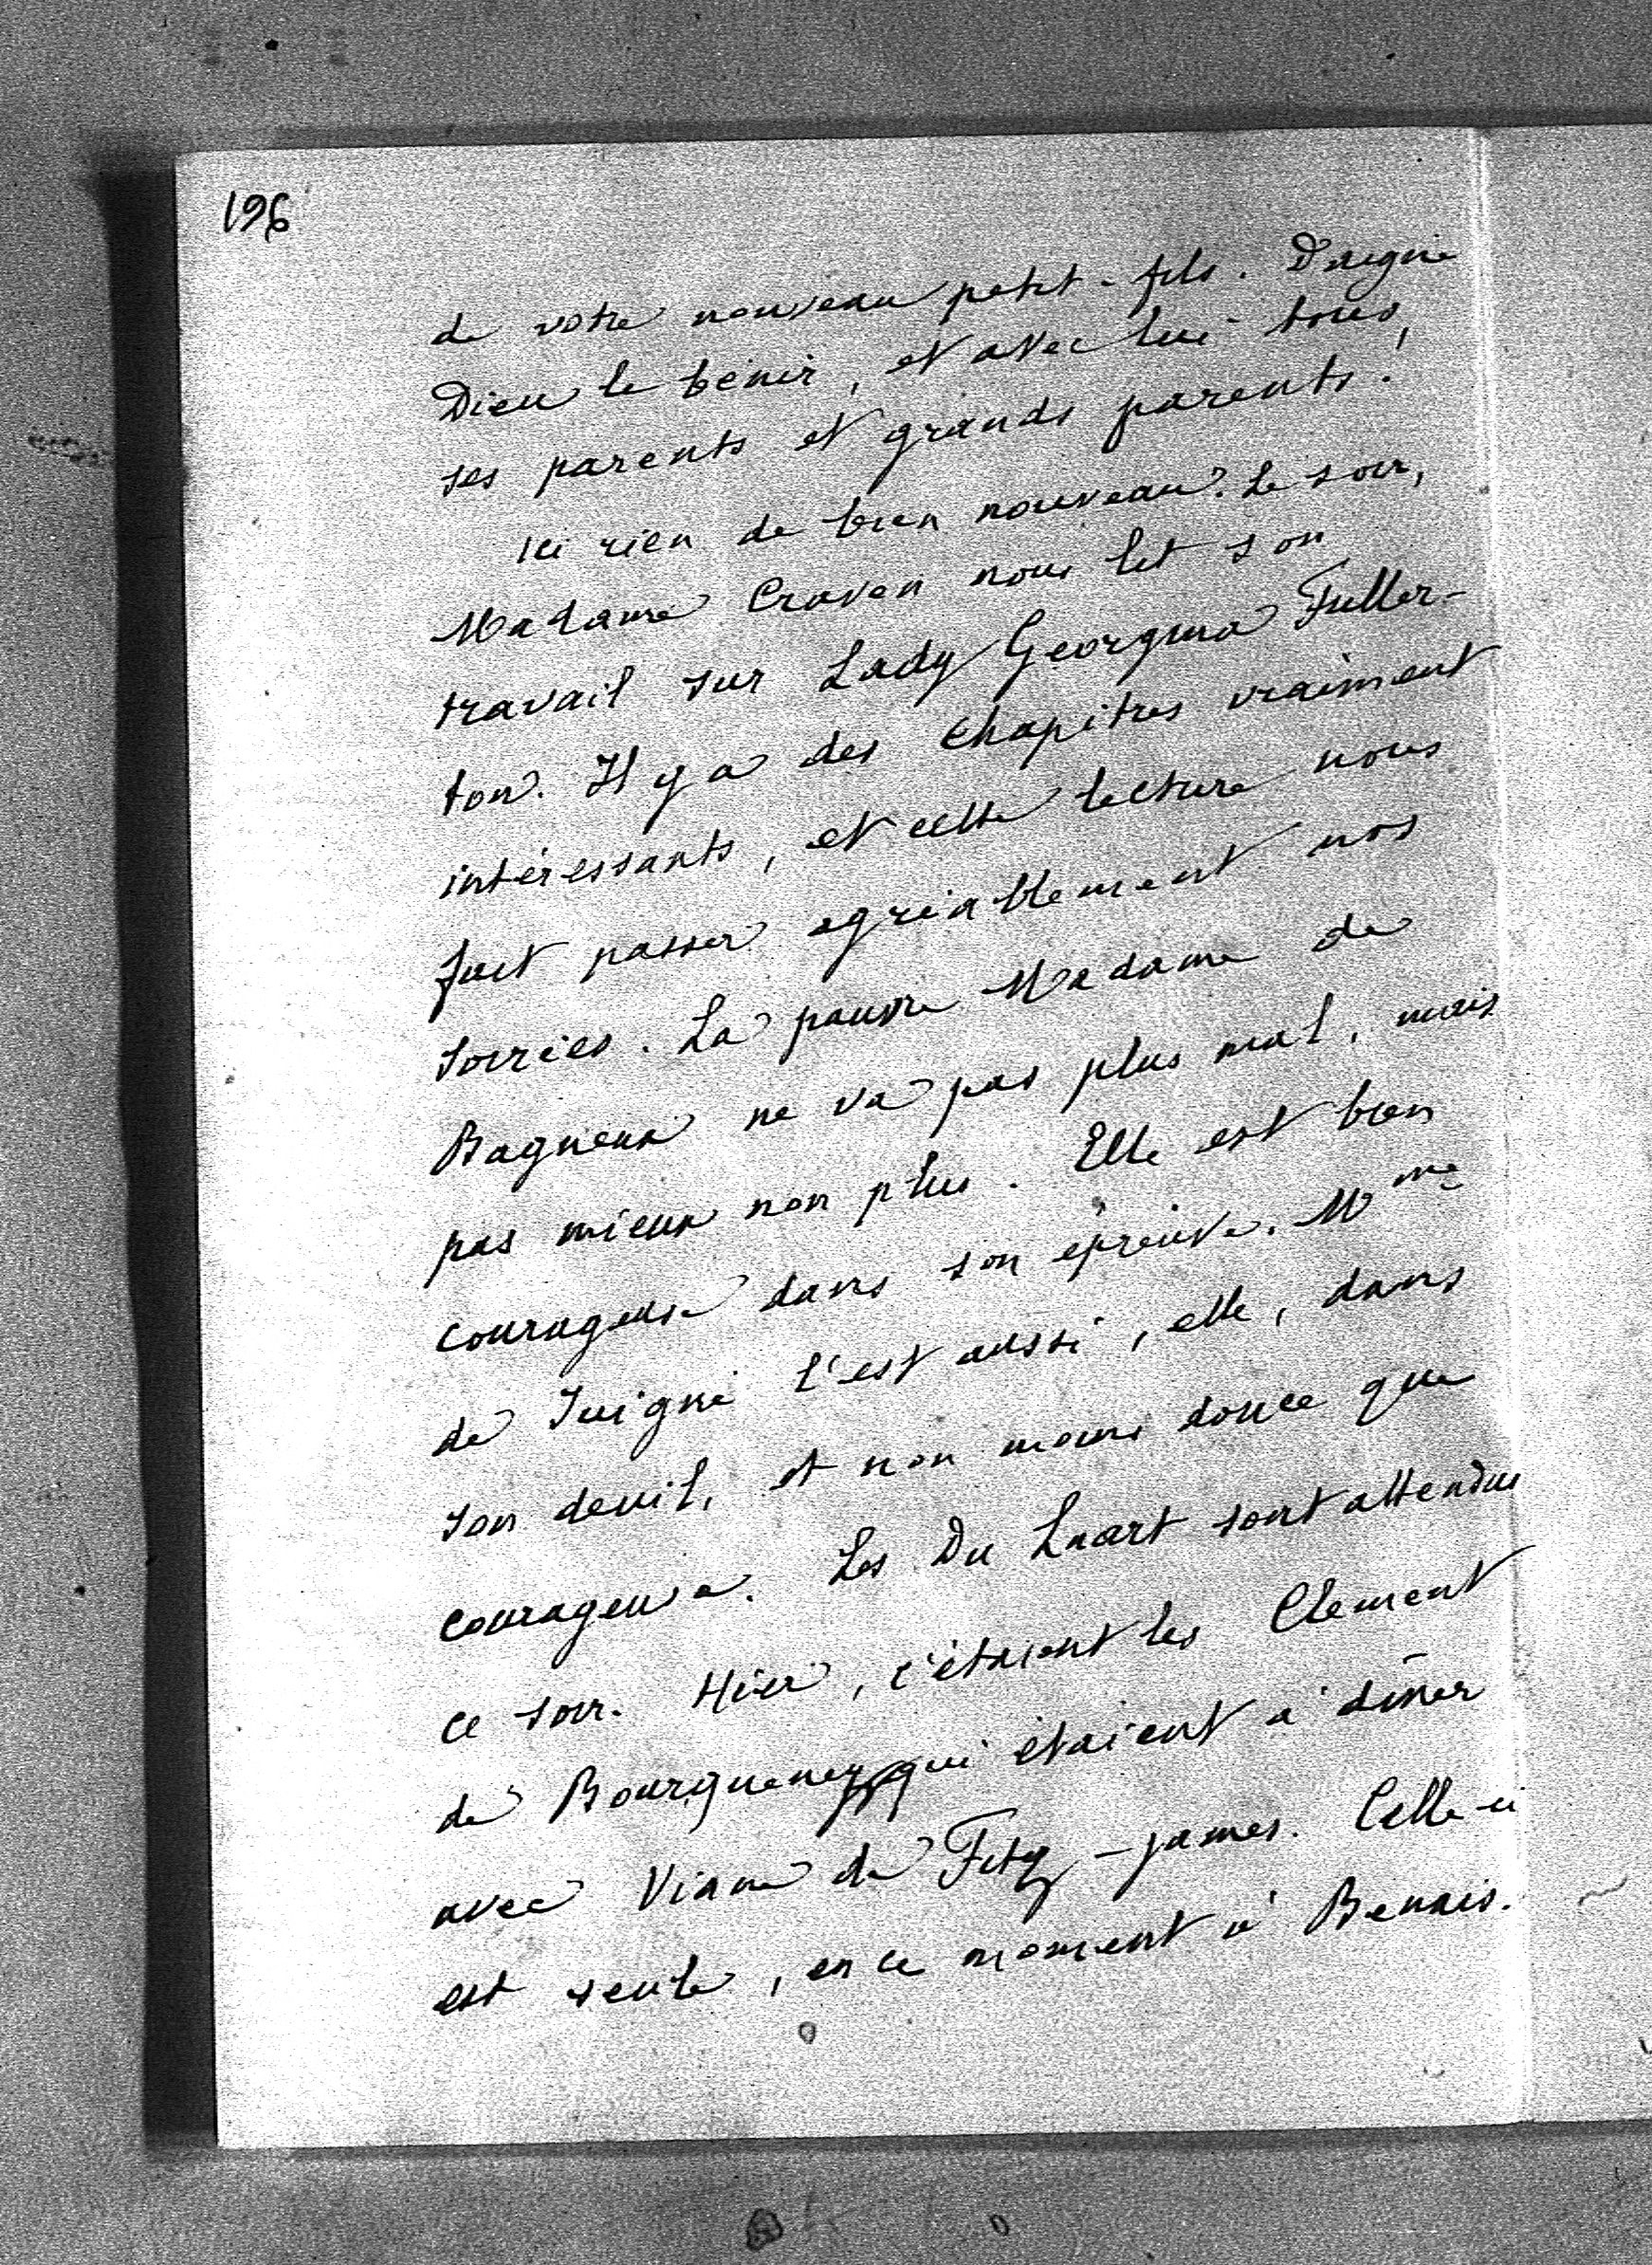 196
de votre nouveau petit-fils. Daigne
Dieu le bénir, et avec lui tous
ses parents et grands parents!
Ici rien de bien nouveau. Le soir,
Madame Craven nous lit son
travail sur Lady Georgina Fuller-
ton. Il y a des chapitres vraiment
intéressants, et cette lecture nous
fait passer agréablement nos
soirées. La pauvre Madame de
Bagneux ne va pas plus mal, mais
pas mieux non plus. Elle est bien
courageuse dans son épreuve. Mme
de Juigné l'est aussi, elle, dans
son deuil, et non moins douce que
courageuse. Les Du Luart sont attendus
ce soir. Hier, c'étaient les Clément
de Bourgueney qui étaient à dîner
avec de Fitz-james. Celle-ci
est seule, en ce moment à Benais.